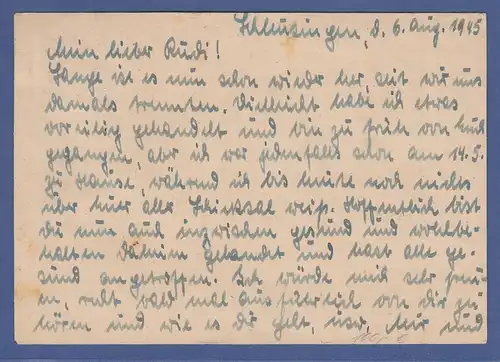 Schleusingen, d. 6. Aug. 1945
Mein lieber Rudi!
Lange ist es nun schon wieder her, seit wir uns
damals trennten. Vielleicht habe ich etwas
voreilig gehandelt und bin zu früh von Euch
gegangen, aber ich war jedenfalls schon am 14.5.
zu Hause, während ich bis heute noch nichts
über Euer aller Schicksal weiß. Hoffentlich bist
du nun auch inzwischen gesund und wohlbe-
halten daheim gelandet und hast alle ge-
sund angetroffen. Ich würde mich sehr freu-
en, recht bald mal ausführlich von dir zu
hören und wie es dir geht, usw. Mir und